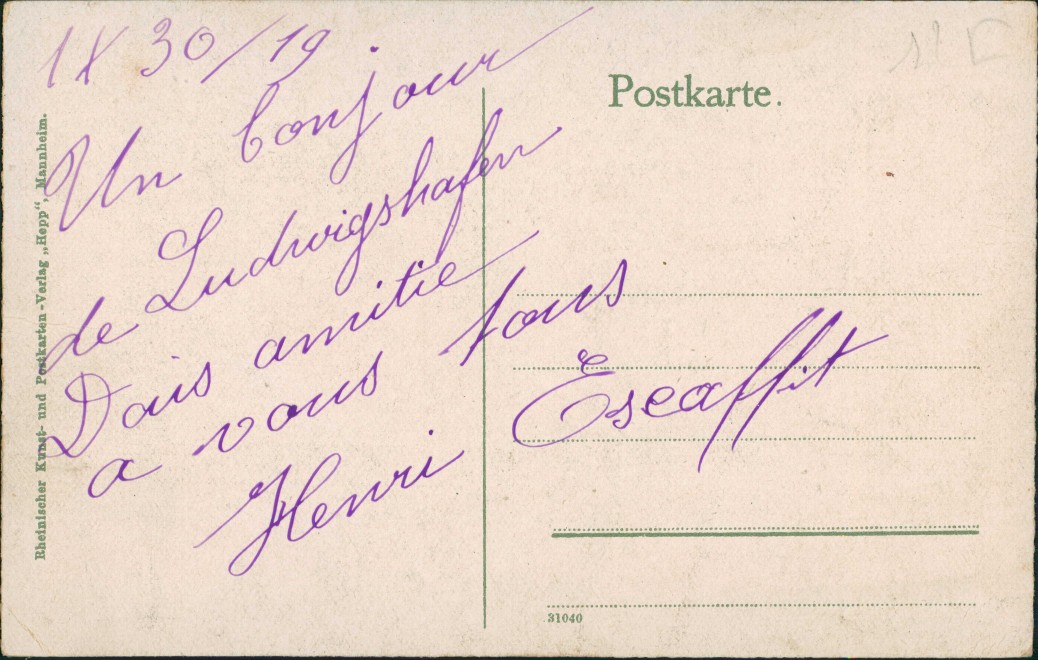 1X 30/19
Un bonjour
de Ludwigshafen
Dais amitie
a vous tous
Henri Escaffit
Postkarte.
Rheinischer Kunst- und Postkarten-Verlag „Hepp“, Mannheim.
31040